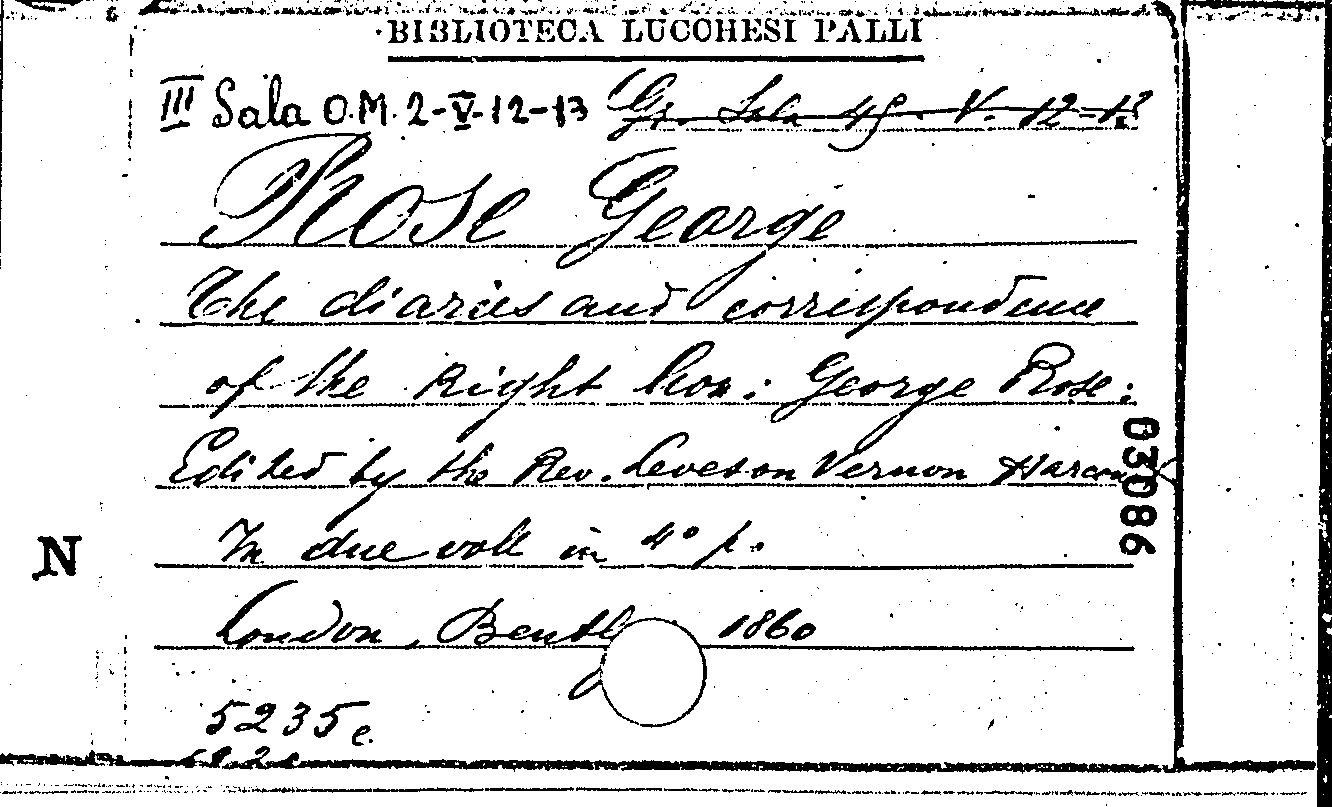 BIBLIOTECA LUCCHESI PALLI
III Sala O.M. 2-V-12-13 Gr. Sala 45. V. 12-13
Rose George
The diaries and correspondence
of the Right hon: George Rose:
Edited by the Rev. Leveson Vernon Harcourt
In due voll in 4° p.
N
London, Bentley 1860
5235 c.
03086